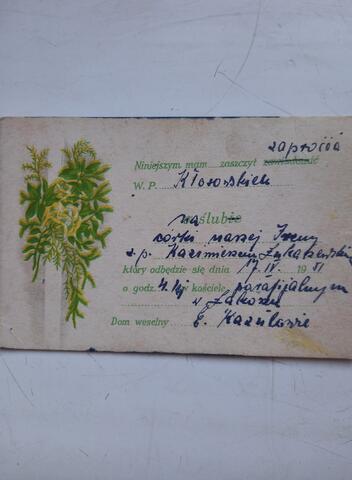 zaprosić
Niniejszym mam zaszczyt zawiadomić
W. P. Kłosowskich
na ślubie
córki naszej Ireny
z p. Kazimierzem
który odbędzie się dnia 17. IV. 1951
o godz. w kościele parafialnym
w
Dom weselny E.